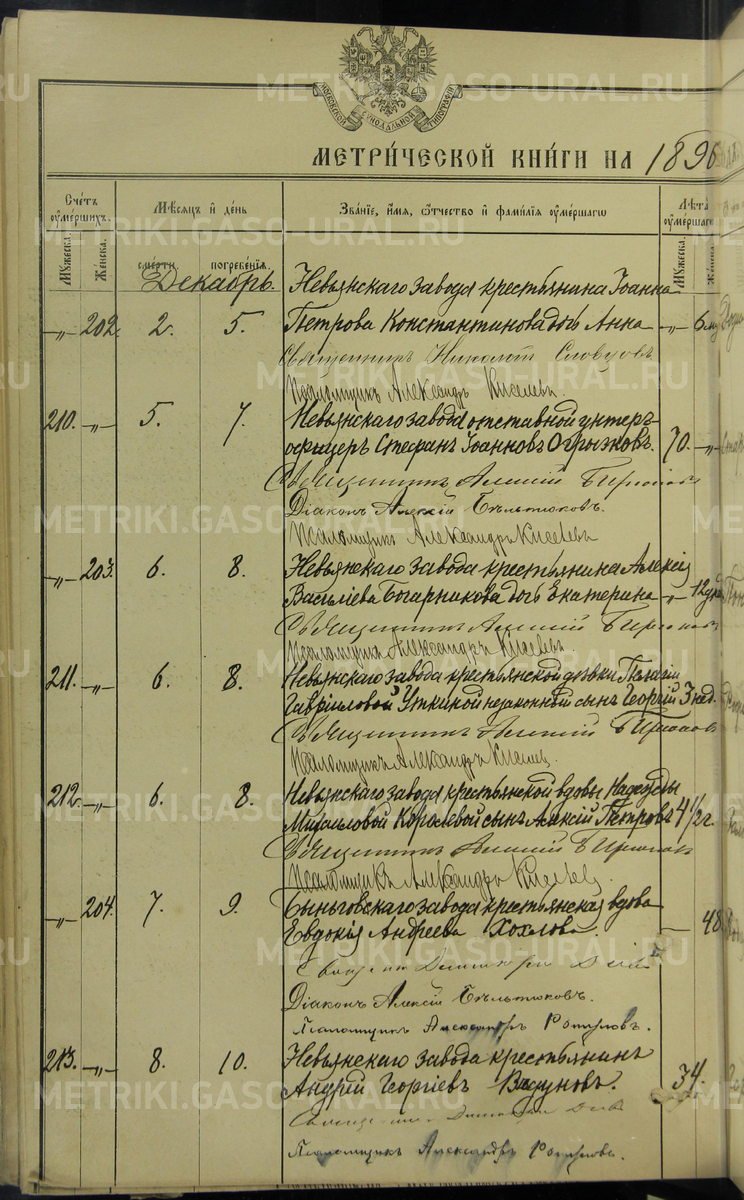 МОСКОВСКОЙ СѴНОДАЛЬНОЙ ТИПОГРАФІИ
МЕТРИ́ЧЕСКОЙ КНИ́ГИ НА 1896
Сче́тъ ᲂу҆ме́ршихъ.
Мѣ́сяцъ и҆ де́нь
Зва́нїе, и҆́мя, ѻ҆́тчество и҆ фами́лїя ᲂу҆ме́ршагѡ
Лѣ́та ᲂу҆ме́ршагѡ
Мꙋ́жеска. Же́нска. сме́рти. погребе́нїя. Мꙋ́жеска. Же́нска.
Декабрь. Невьянскаго завода крестьянина Іоанна
–„– 202. 2. 5. Петрова Константинова дочь Анна –„– 6
Священникъ Николай Словцовъ
Псаломщикъ Александръ Киселевъ
210. –„– 5. 7. Невьянскаго завода отставной унтеръ-
офицеръ Стефанъ Іоанновъ Огрызковъ. 70. –„–
Священникъ Алексій Бирюковъ
Діаконъ Алексій Бѣльтюковъ.
Псаломщикъ Александръ Киселевъ
–„– 203. 6. 8. Невьянскаго завода крестьянина Алексія
Васильева Богарникова дочь Екатерина –„– 12
Священникъ Алексій Бирюковъ
Псаломщикъ Александръ Киселевъ.
211. –„– 6. 8. Невьянскаго завода крестьянской дѣвки Пелагіи
Гавріиловой Уткиной незаконный сынъ Георгій 3 нед.
Священникъ Алексій Бирюковъ
Псаломщикъ Александръ Киселев
212. –„– 6. 8. Невьянскаго завода крестьянской вдовы Надежды
Михаиловой Королевой сынъ Алексій Петровъ 4 1/2 г.
Священникъ Алексій Бирюков
Псаломщикъ Александръ Киселевъ.
–„– 204. 7. 9. Быньговскаго завода крестьянская вдова
Евдокія Андреева Хохлова. — 48
Діаконъ Алексій Бѣльтюковъ.
Псаломщикъ Александръ
213. –„– 8. 10. Невьянскаго завода крестьянинъ
Андрей Георгіевъ Вадуновъ. 34.
Псаломщикъ Александръ
METRIKI.GASO-URAL.RU